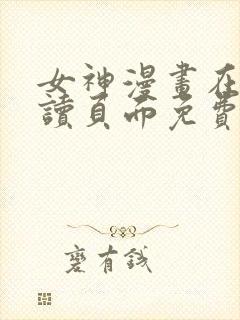 女神漫畫在
讀頁面免費
麼有錢